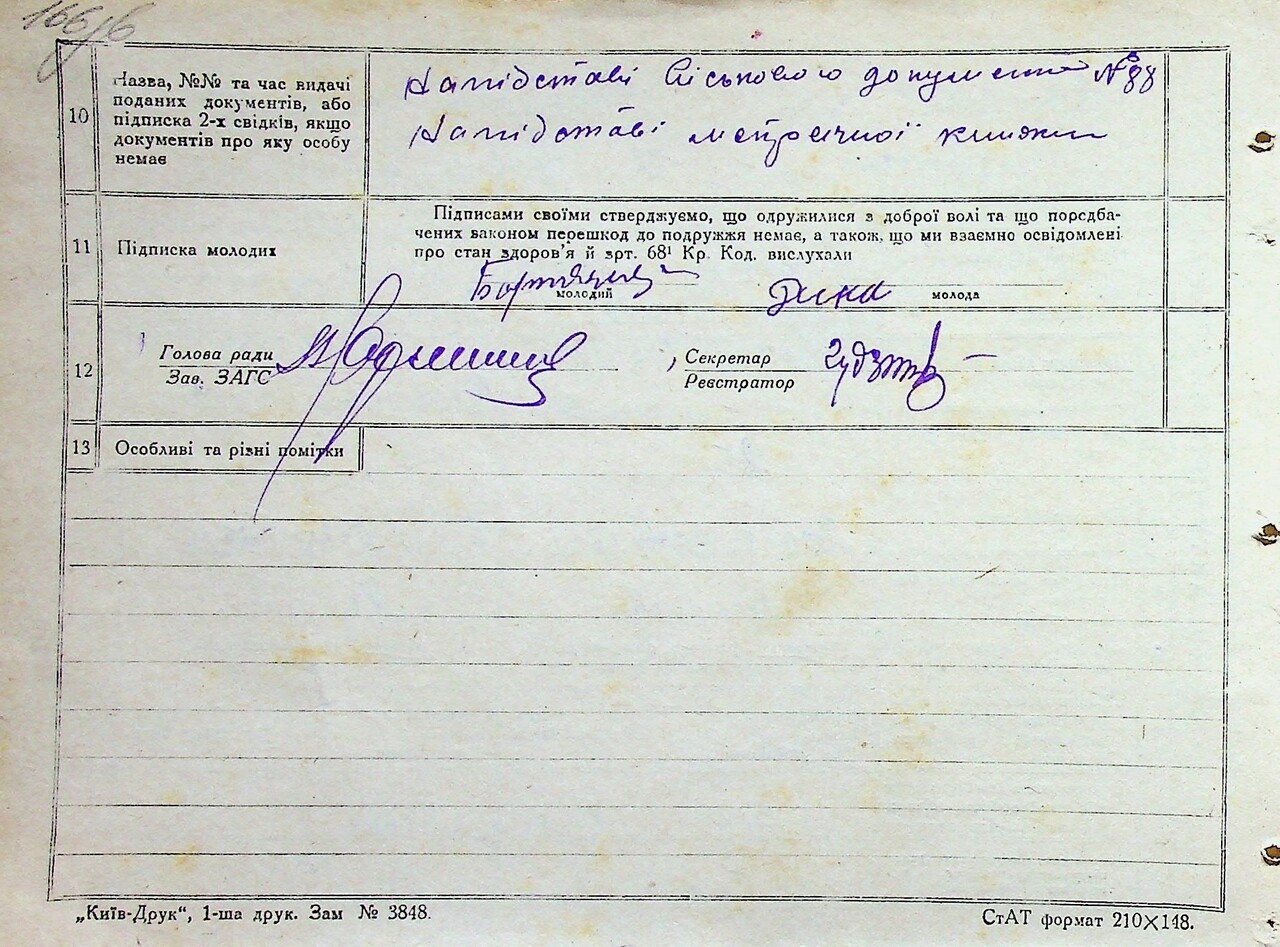 10
Назва, №№ та час видачі
поданих документів, або
підписка 2-х свідків, якщо
документів про яку особу
немає
На підставі військового документа № 88
На підставі метричної книжки
11
Підписка молодих
Підписами своїми стверджуємо, що одружилися з доброї волі та що передба-
чених законом перешкод до подружжя немає, а також, що ми взаємно освідомлені
про стан здоров'я й арт. 68¹ Кр. Код. вислухали
молодий
Дика
молода
12
Голова ради
Зав. ЗАГС
Секретар
Реєстратор
13
Особливі та різні помітки
„Київ-Друк“, 1-ша друк. Зам № 3848.
СтАТ формат 210×148.